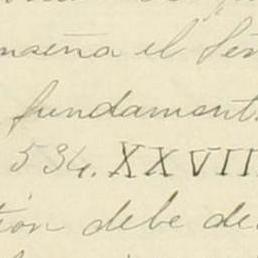 enseña el Sén
fundament
534. XXVIII
tion debe de